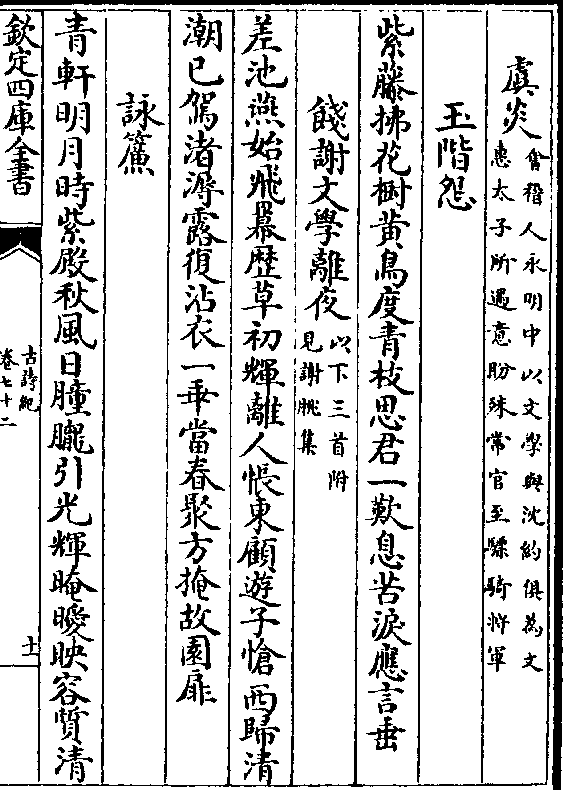 虞炎
會稽人永明中以文學與沈約俱為文
惠太子所遇意盼殊常官至驃騎將軍
玉階怨
紫藤拂花樹黃鳥度青枝思君一歎息苦淚應言垂
餞謝文學離夜
以下三首附
見謝朓集
差池燕始飛幕歷草初輝離人悵東顧遊子愴西歸清
潮已駕渚溽露復沾衣一乖當春聚方掩故園扉
詠簾
青軒明月時紫殿秋風日朣朧引光輝晻曖映容質清
欽定四庫全書
古詩紀
卷七十二
十一